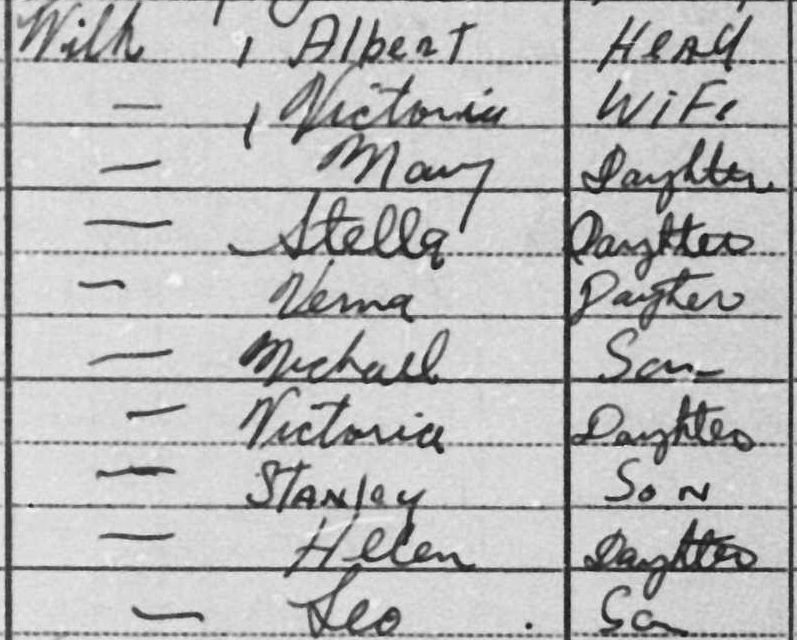 Wilk , Albert Head
— , Victoria Wife
— Mary Daughter
— Stella Daughter
— Verna Daughter
— Michael Son
— Victoria Daughter
— Stanley Son
— Helen Daughter
— Leo Son